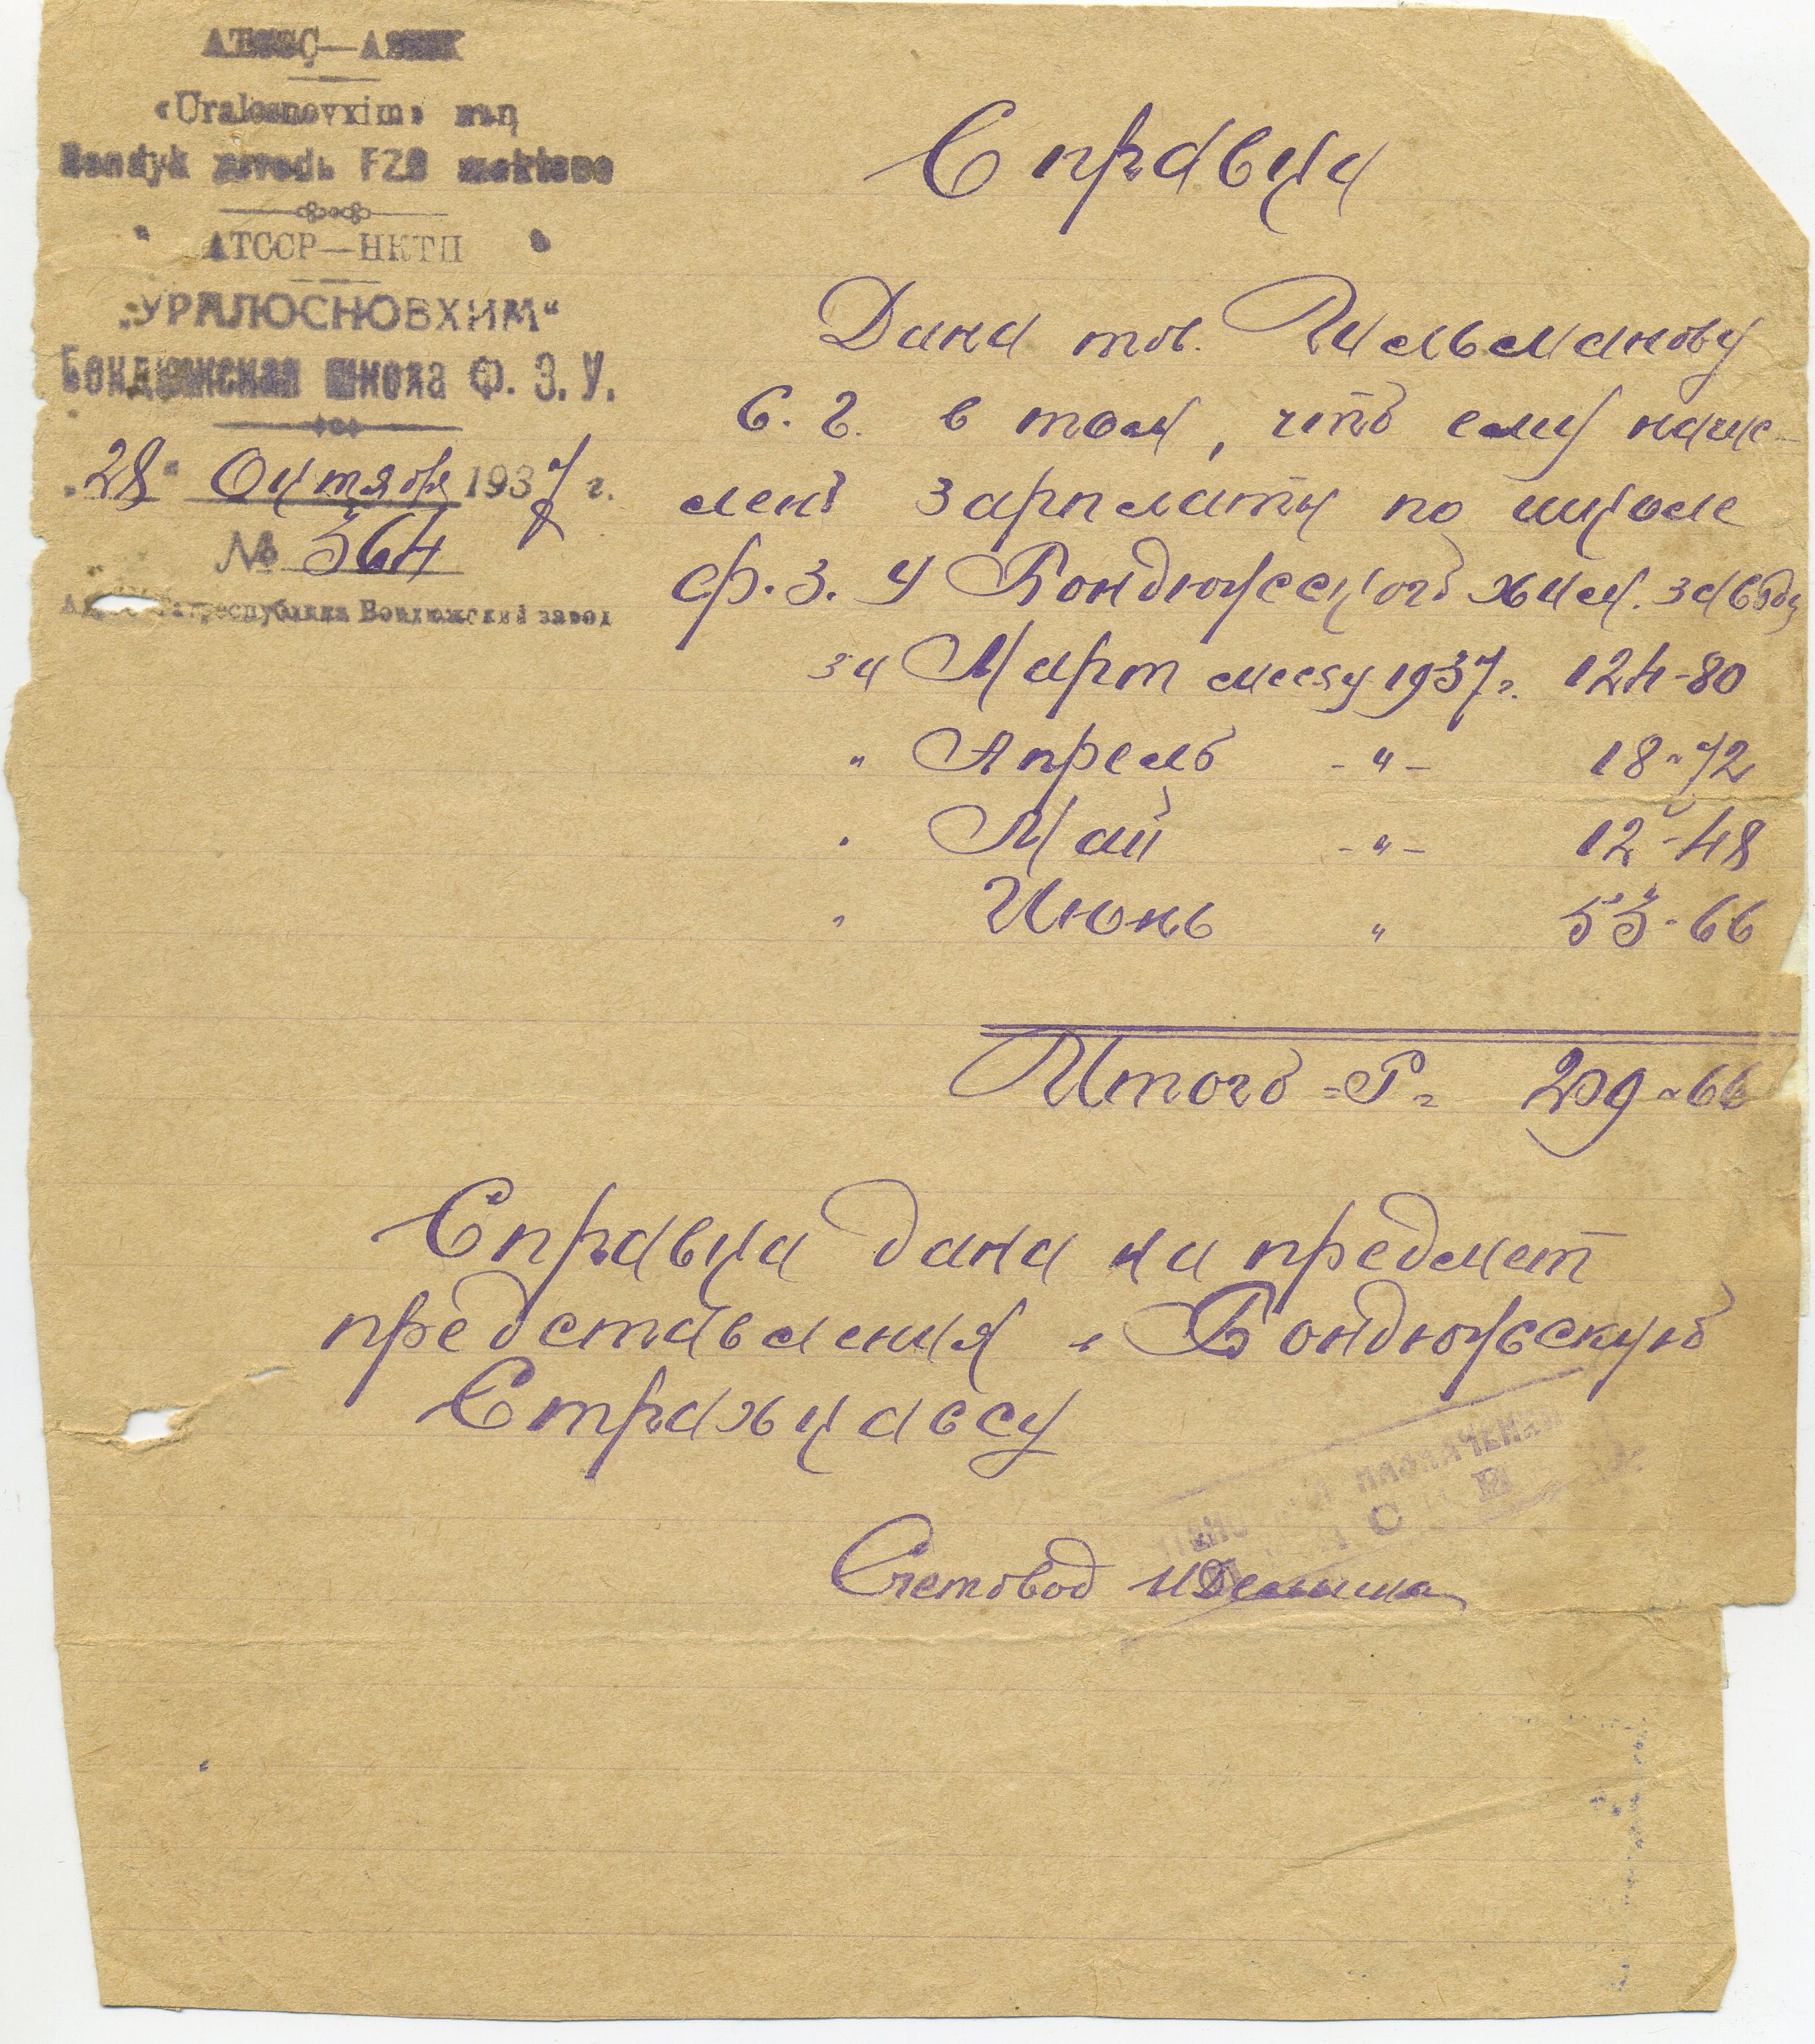 «Uralosnovxim» nьꞑ
Bondyk zavodь FZO mektebe
АТССР—НКТП
„УРАЛОСНОВХИМ“
Бондюжская школа Ф. З. У.
„28“ Октября 1937 г.
№ 564
Татреспублика Бондюжский завод
Справка
Дана тов. Шельманову
С. Г. в том, что ему начис-
лено зарплаты по школе
Ф. З. У Бондюжского хим. завода
за Март месяц 1937 г. 124-80
" Апрель -"- 18-72
" Май -"- 12-48
" Июнь " 53-66
Итого =Р= 209-66
Справка дана на предмет
представления в Бондюжскую
Страхкассу
Счетовод